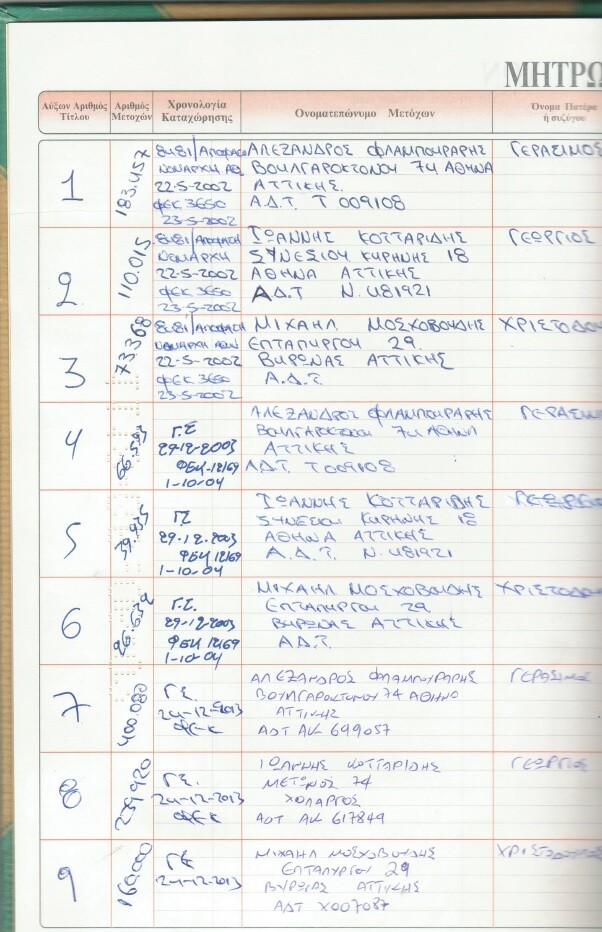 ΜΗΤΡΩ
Αύξων Αριθμός Τίτλου
Αριθμός Μετοχών
Χρονολογία Καταχώρησης
Ονοματεπώνυμο Μετόχων
Όνομα Πατέρα ή συζύγου
1
183.457
22-5-2002
ΦΕΚ 3650
23-5-2002
ΑΛΕΞΑΝΔΡΟΣ ΦΛΑΜΠΟΥΡΑΡΗΣ
ΒΟΥΛΓΑΡΟΚΤΟΝΟΥ 74 ΑΘΗΝΑ
ΑΤΤΙΚΗΣ.
Α.Δ.Τ. Τ 009108
ΓΕΡΑΣΙΜΟΣ
2
110.015
22-5-2002
ΦΕΚ 3650
23-5-2002
ΙΩΑΝΝΗΣ ΚΟΤΤΑΡΙΔΗΣ
ΣΥΝΕΣΙΟΥ ΚΥΡΗΝΗΣ 18
ΑΘΗΝΑ ΑΤΤΙΚΗΣ
Α.Δ.Τ Ν. 481921
ΓΕΩΡΓΙΟΣ
3
73.368
22-5-2002
ΦΕΚ 3650
23-5-2002
ΜΙΧΑΗΛ ΜΟΣΧΟΒΟΥΔΗΣ
ΕΠΤΑΠΥΡΓΟΥ 29.
ΒΥΡΩΝΑΣ ΑΤΤΙΚΗΣ
Α.Δ.Τ.
ΧΡΙΣΤΟΔΟΥ
4
Γ.Σ
29-12-2003
ΦΕΚ 12169
1-10-04
ΑΛΕΞΑΝΔΡΟΣ ΦΛΑΜΠΟΥΡΑΡΗΣ
ΒΟΥΛΓΑΡΟΚΤΟΝΟΥ 74 ΑΘΗΝΑ
ΑΤΤΙΚΗΣ
Α.Δ.Τ. Τ009108
ΓΕΡΑΣΙΜ
5
ΓΣ
29.12.2003
ΦΕΚ 12169
1-10-04
ΙΩΑΝΝΗΣ ΚΟΤΤΑΡΙΔΗΣ
ΣΥΝΕΣΙΟΥ ΚΥΡΗΝΗΣ 18
ΑΘΗΝΑ ΑΤΤΙΚΗΣ
Α.Δ.Τ. Ν.481921
ΓΕΩΡΓΙΟΣ
6
Γ.Σ.
29-12-2003
ΦΕΚ 12169
1-10-04
ΜΙΧΑΗΛ ΜΟΣΧΟΒΟΥΔΗΣ
ΕΠΤΑΠΥΡΓΟΥ 29
ΒΥΡΩΝΑΣ ΑΤΤΙΚΗΣ
ΑΔ.Τ.
ΧΡΙΣΤΟΔΟΥ
7
400.080
Γ.Σ.
24-12-2013
ΦΕΚ
ΑΛΕΞΑΝΔΡΟΣ ΦΛΑΜΠΟΥΡΑΡΗΣ
ΒΟΥΛΓΑΡΟΚΤΟΝΟΥ 74 ΑΘΗΝΑ
ΑΤΤΙΚΗΣ
ΑΔΤ ΑΚ 699057
ΓΕΡΑΣΙΜΟΣ
8
239.920
Γ.Σ.
24-12-2013
ΦΕΚ
ΙΩΑΝΝΗΣ ΚΟΤΤΑΡΙΔΗΣ
ΜΕΤΩΝΟΣ 74
ΧΟΛΑΡΓΟΣ
ΑΔΤ ΑΚ 617849
ΓΕΩΡΓΙΟΣ
9
160.000
ΓΣ
24-12-2013
ΜΙΧΑΗΛ ΜΟΣΧΟΒΟΥΔΗΣ
ΕΠΤΑΠΥΡΓΟΥ 29
ΑΤΤΙΚΗΣ
ΑΔΤ Χ007087